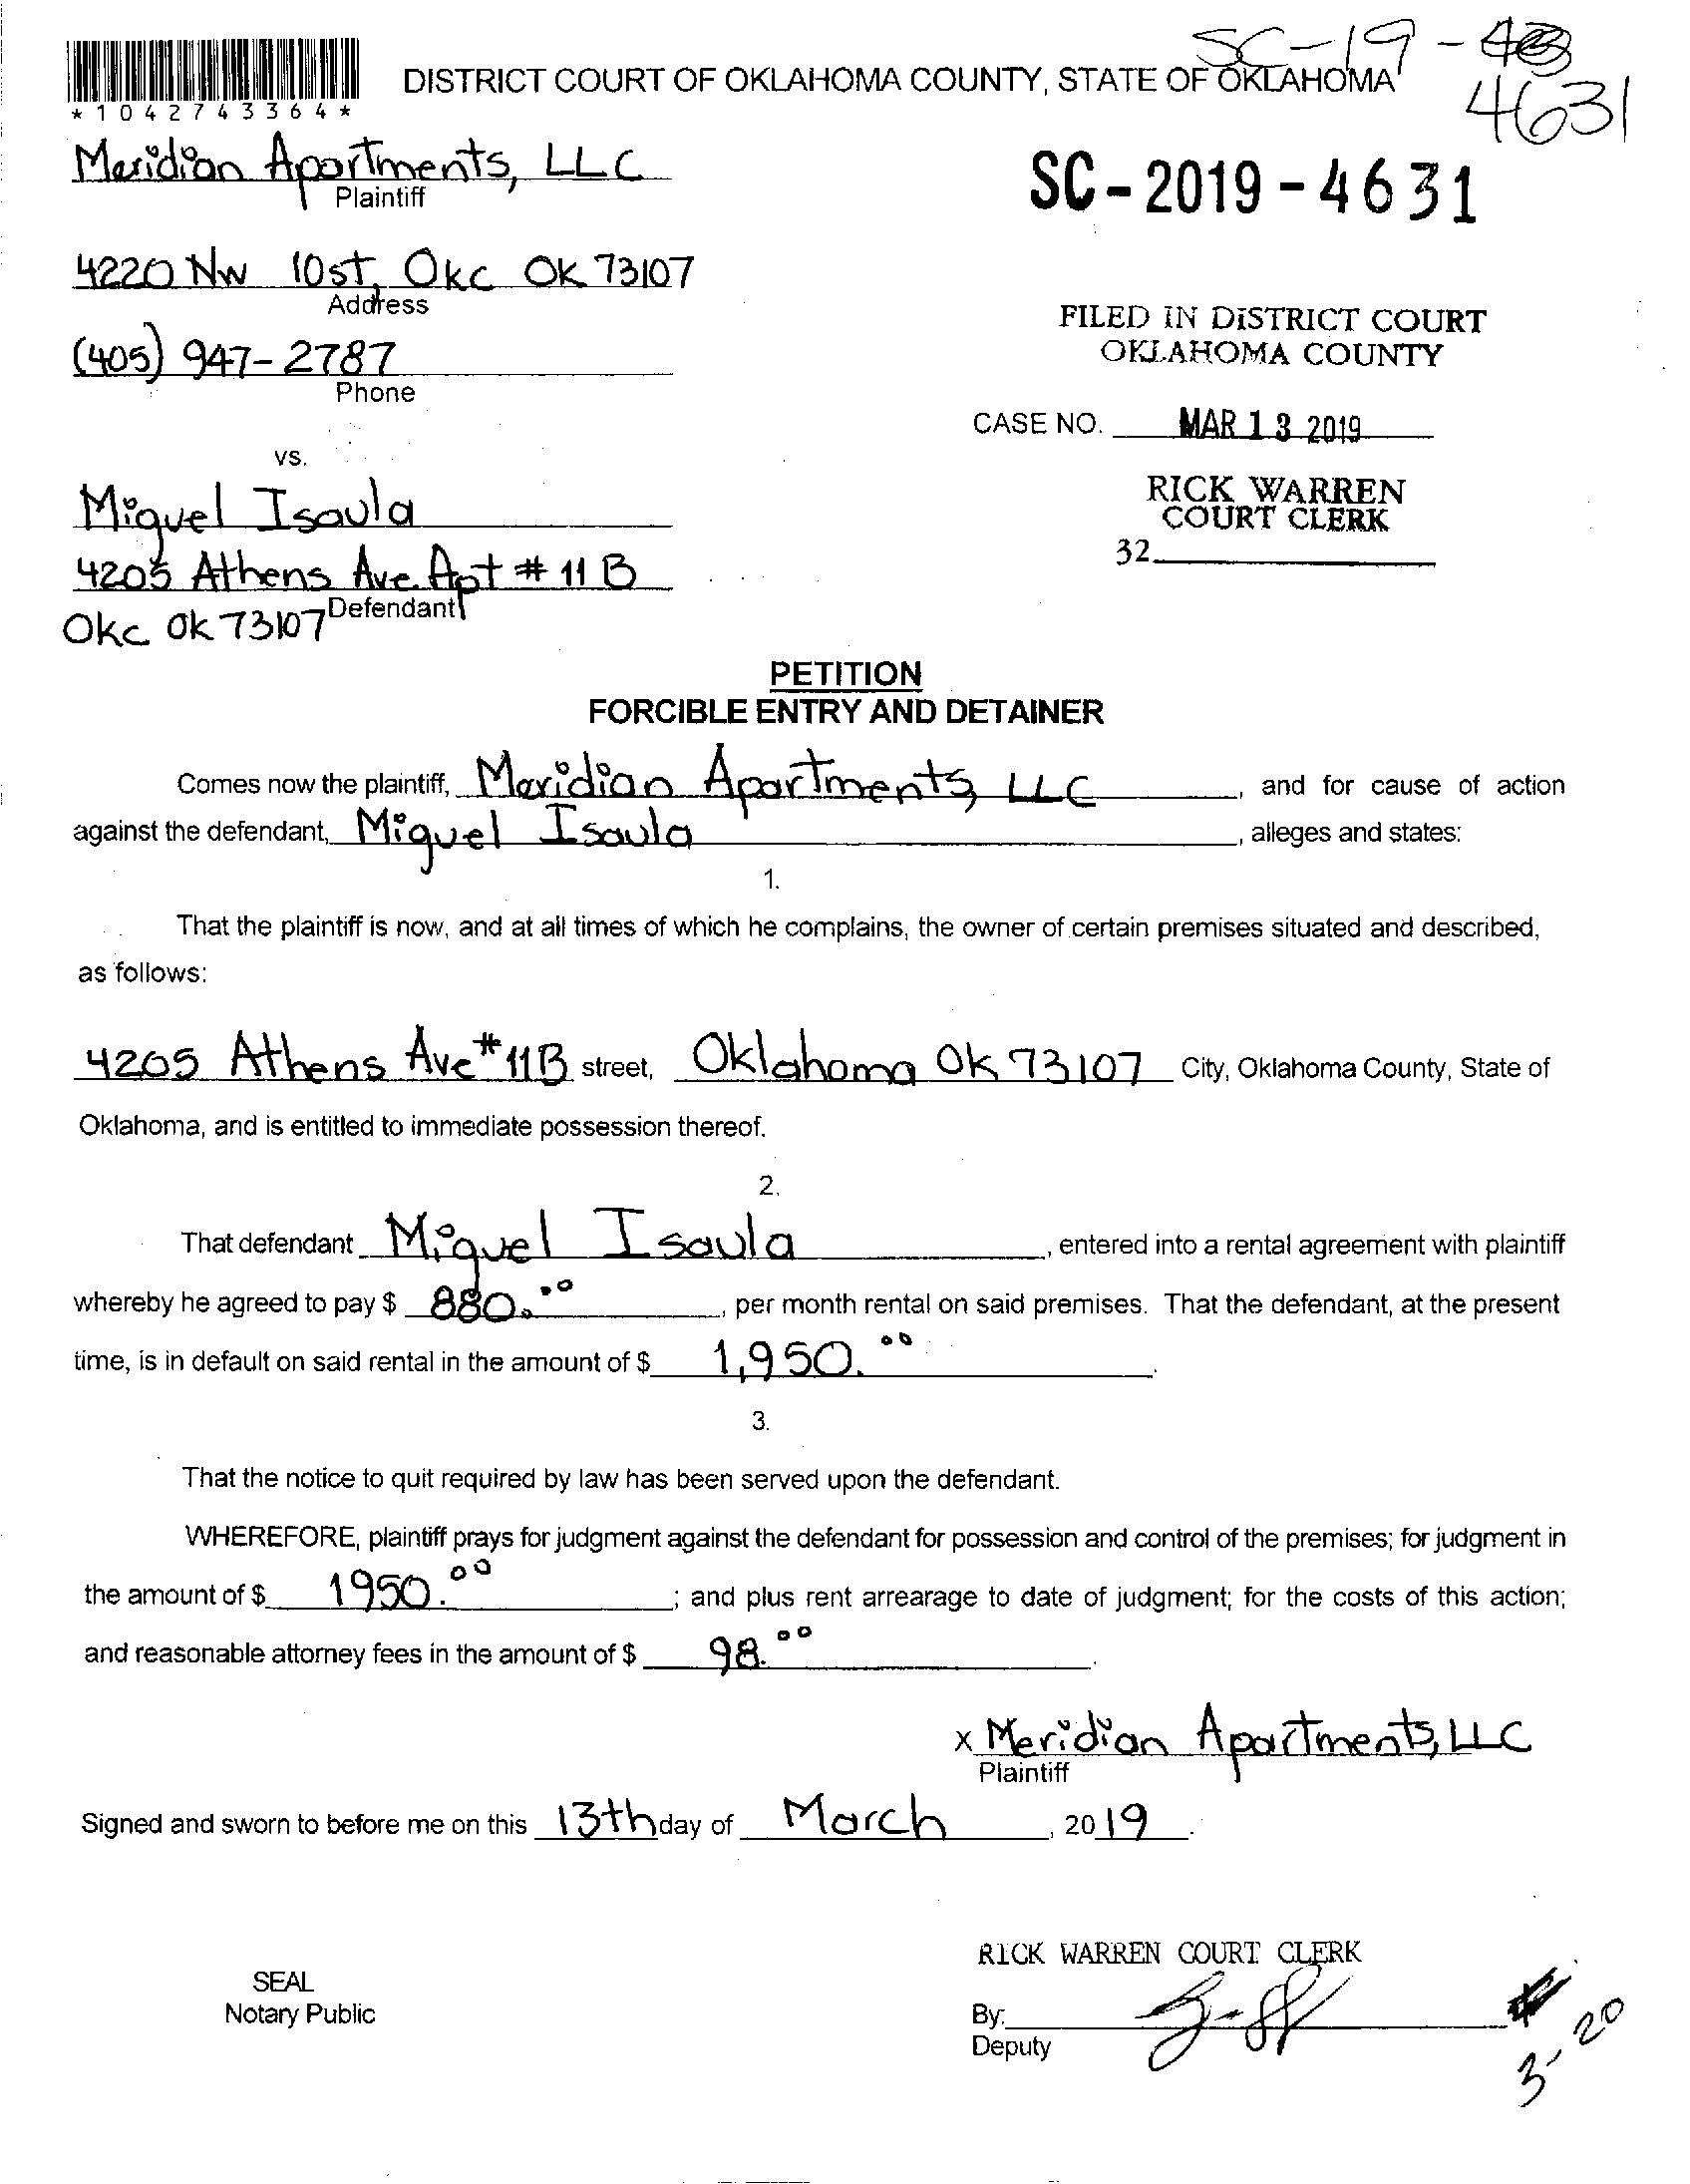 SC-19-
4631
DISTRICT COURT OF OKLAHOMA COUNTY, STATE OF OKLAHOMA
*1042743364*
Meridian Apartments, LLC
Plaintiff
SC-2019-4631
4220 NW 10st, Okc OK 73107
Address
FILED IN DISTRICT COURT
OKLAHOMA COUNTY
(405) 947-2787
Phone
CASE NO. MAR 13 2019
vs.
RICK WARREN
COURT CLERK
32
Miguel Isaula
4205 Athens Ave. Apt # 11 B
Defendant
Okc Ok 73107
PETITION
FORCIBLE ENTRY AND DETAINER
Comes now the plaintiff, Meridian Apartments, LLC, and for cause of action
against the defendant, Miguel Isaula, alleges and states:
1.
That the plaintiff is now, and at all times of which he complains, the owner of certain premises situated and described,
as follows:
4205 Athens Ave #11B street, Oklahoma OK 73107 City, Oklahoma County, State of
Oklahoma, and is entitled to immediate possession thereof.
2.
That defendant Miguel Isaula, entered into a rental agreement with plaintiff
whereby he agreed to pay $ 880.00, per month rental on said premises. That the defendant, at the present
time, is in default on said rental in the amount of $ 1,950.00.
3.
That the notice to quit required by law has been served upon the defendant.
WHEREFORE, plaintiff prays for judgment against the defendant for possession and control of the premises; for judgment in
the amount of $ 1950.00; and plus rent arrearage to date of judgment; for the costs of this action;
and reasonable attorney fees in the amount of $ 98.00.
x Meridian Apartments, LLC
Plaintiff
Signed and sworn to before me on this 13th day of March, 2019.
RICK WARREN COURT CLERK
SEAL
Notary Public
By:
Deputy
3-20